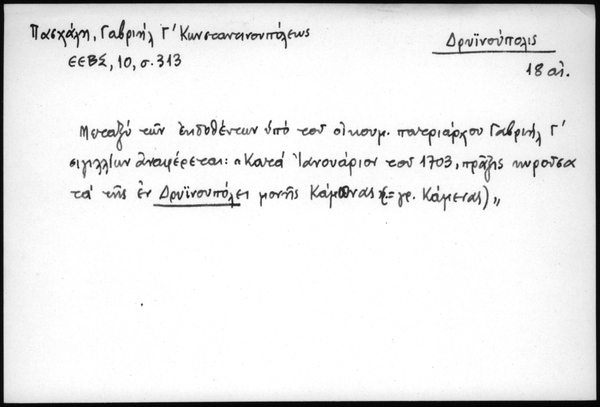 Πασχάλη, Γαβριήλ Γ' Κωνσταντινουπόλεως
ΕΕΒΣ, 10, σ. 313
Δρυϊνούπολις
18 αἰ.
Μεταξύ τῶν ἐκδοθέντων ὑπό τοῦ οἰκουμ. πατριάρχου Γαβριήλ Γ'
σιγιλλίων ἀναφέρεται: "Κατά Ἰανουάριον τοῦ 1703, πρᾶξις κυροῦσα
τά τῆς ἐν Δρυϊνουπόλει μονῆς Κάμενας (=γρ. Κάμενας)"